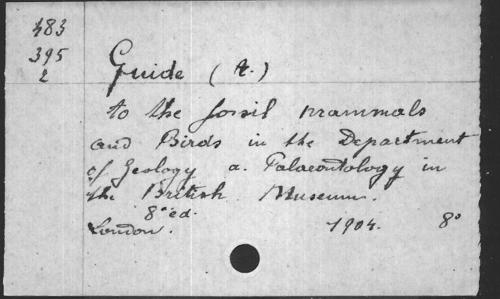 483
395
2
Guide (A.)
to the fossil mammals
and Birds in the Department
of Geology a. Palaeontology in
the British Museum.
8° ed.
London. 1904. 8°